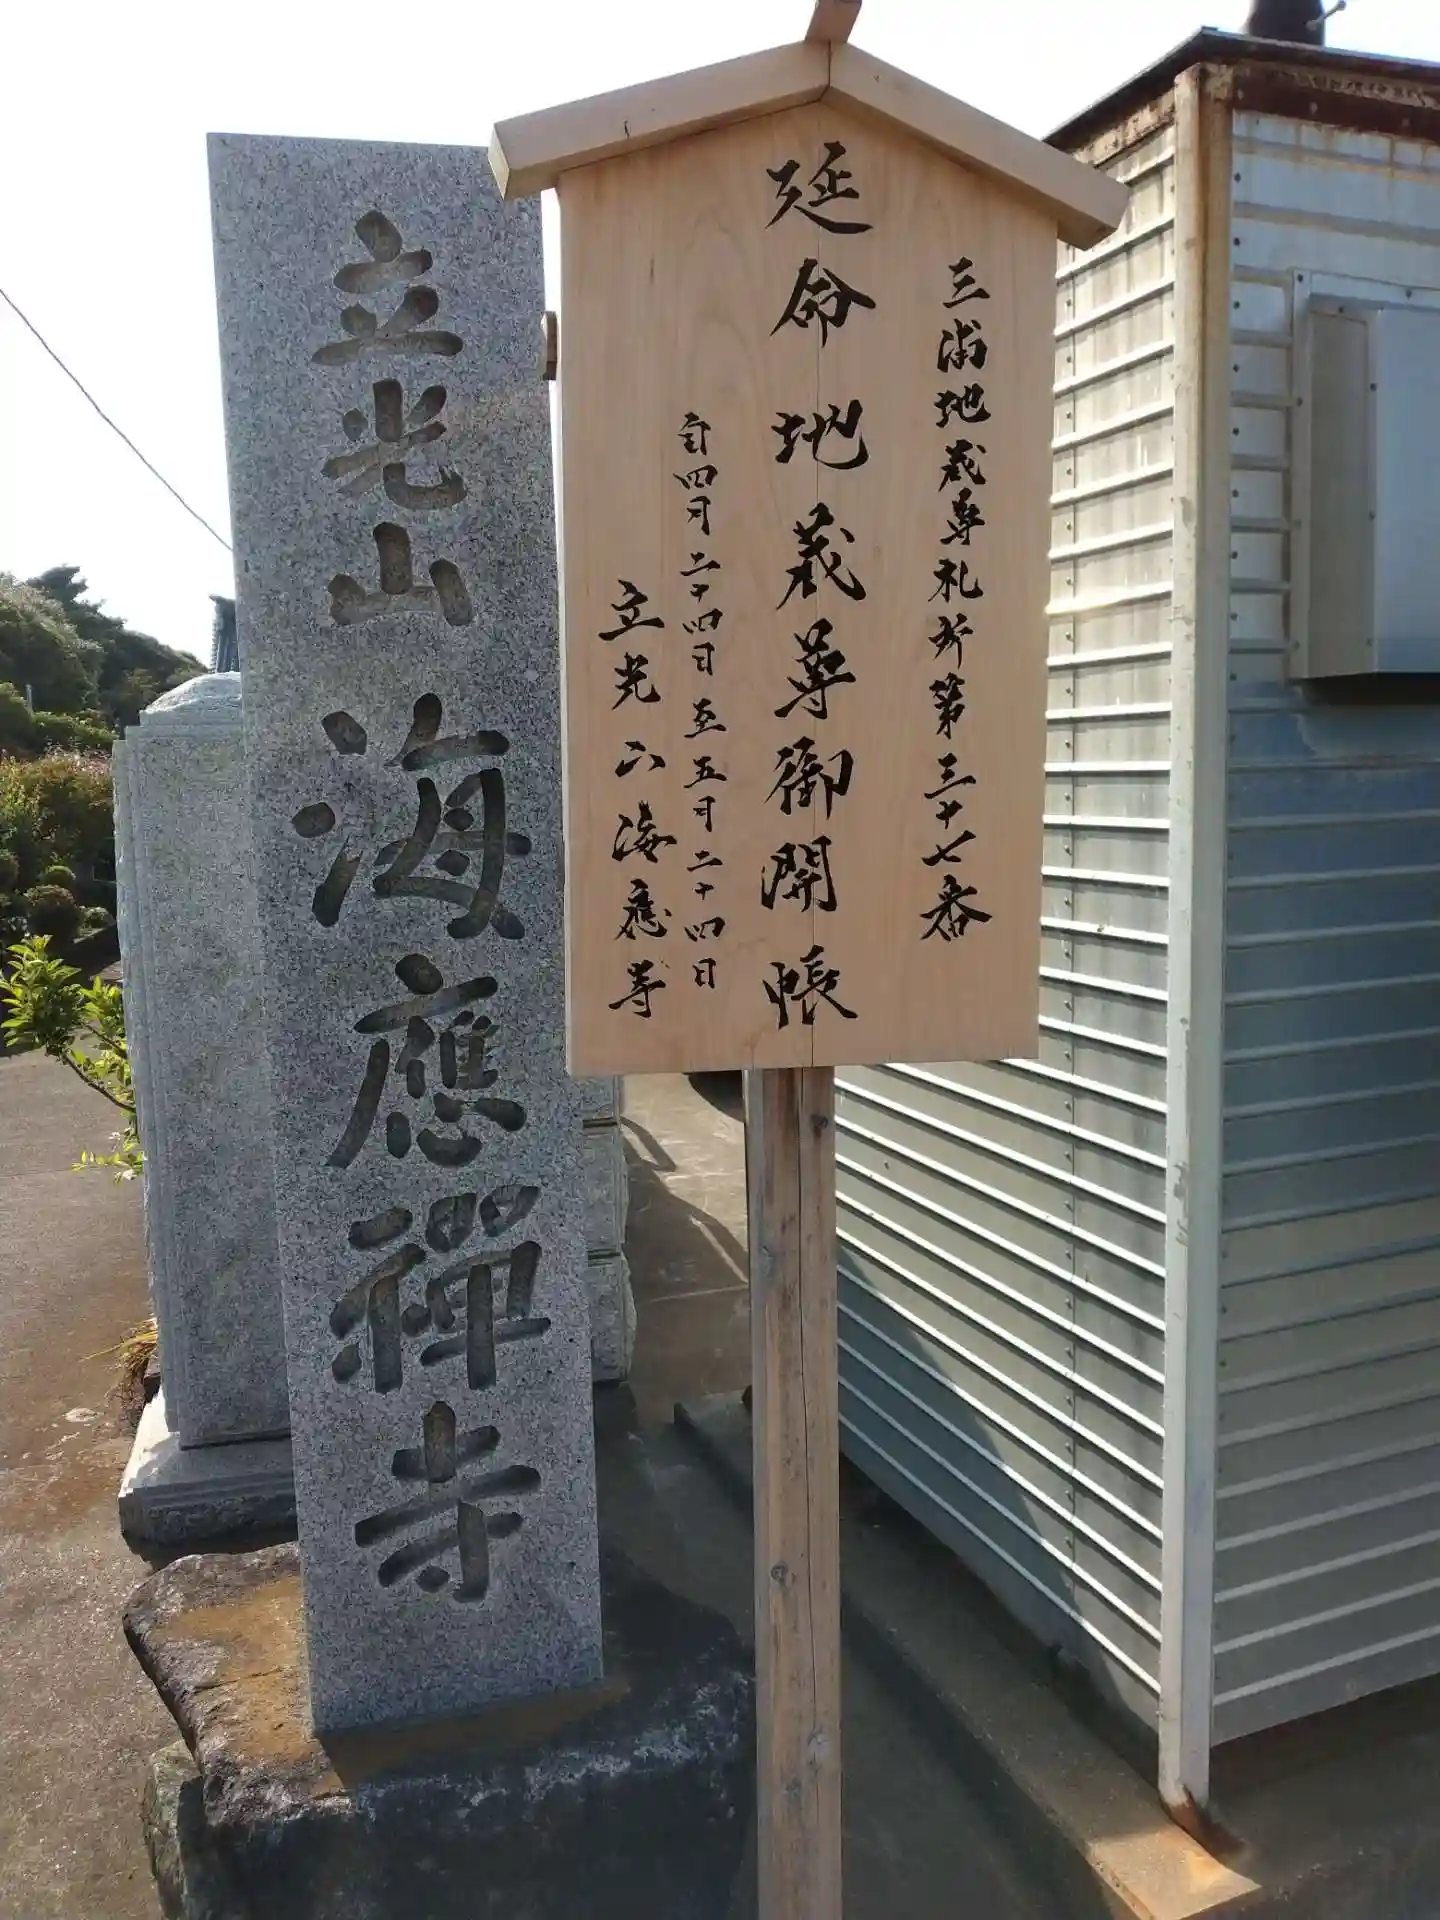 三浦地蔵尊札所第三十七番
延命地蔵尊御開帳
自四月二十四日至五月二十四日
立光山海應寺
立光山海應禅寺